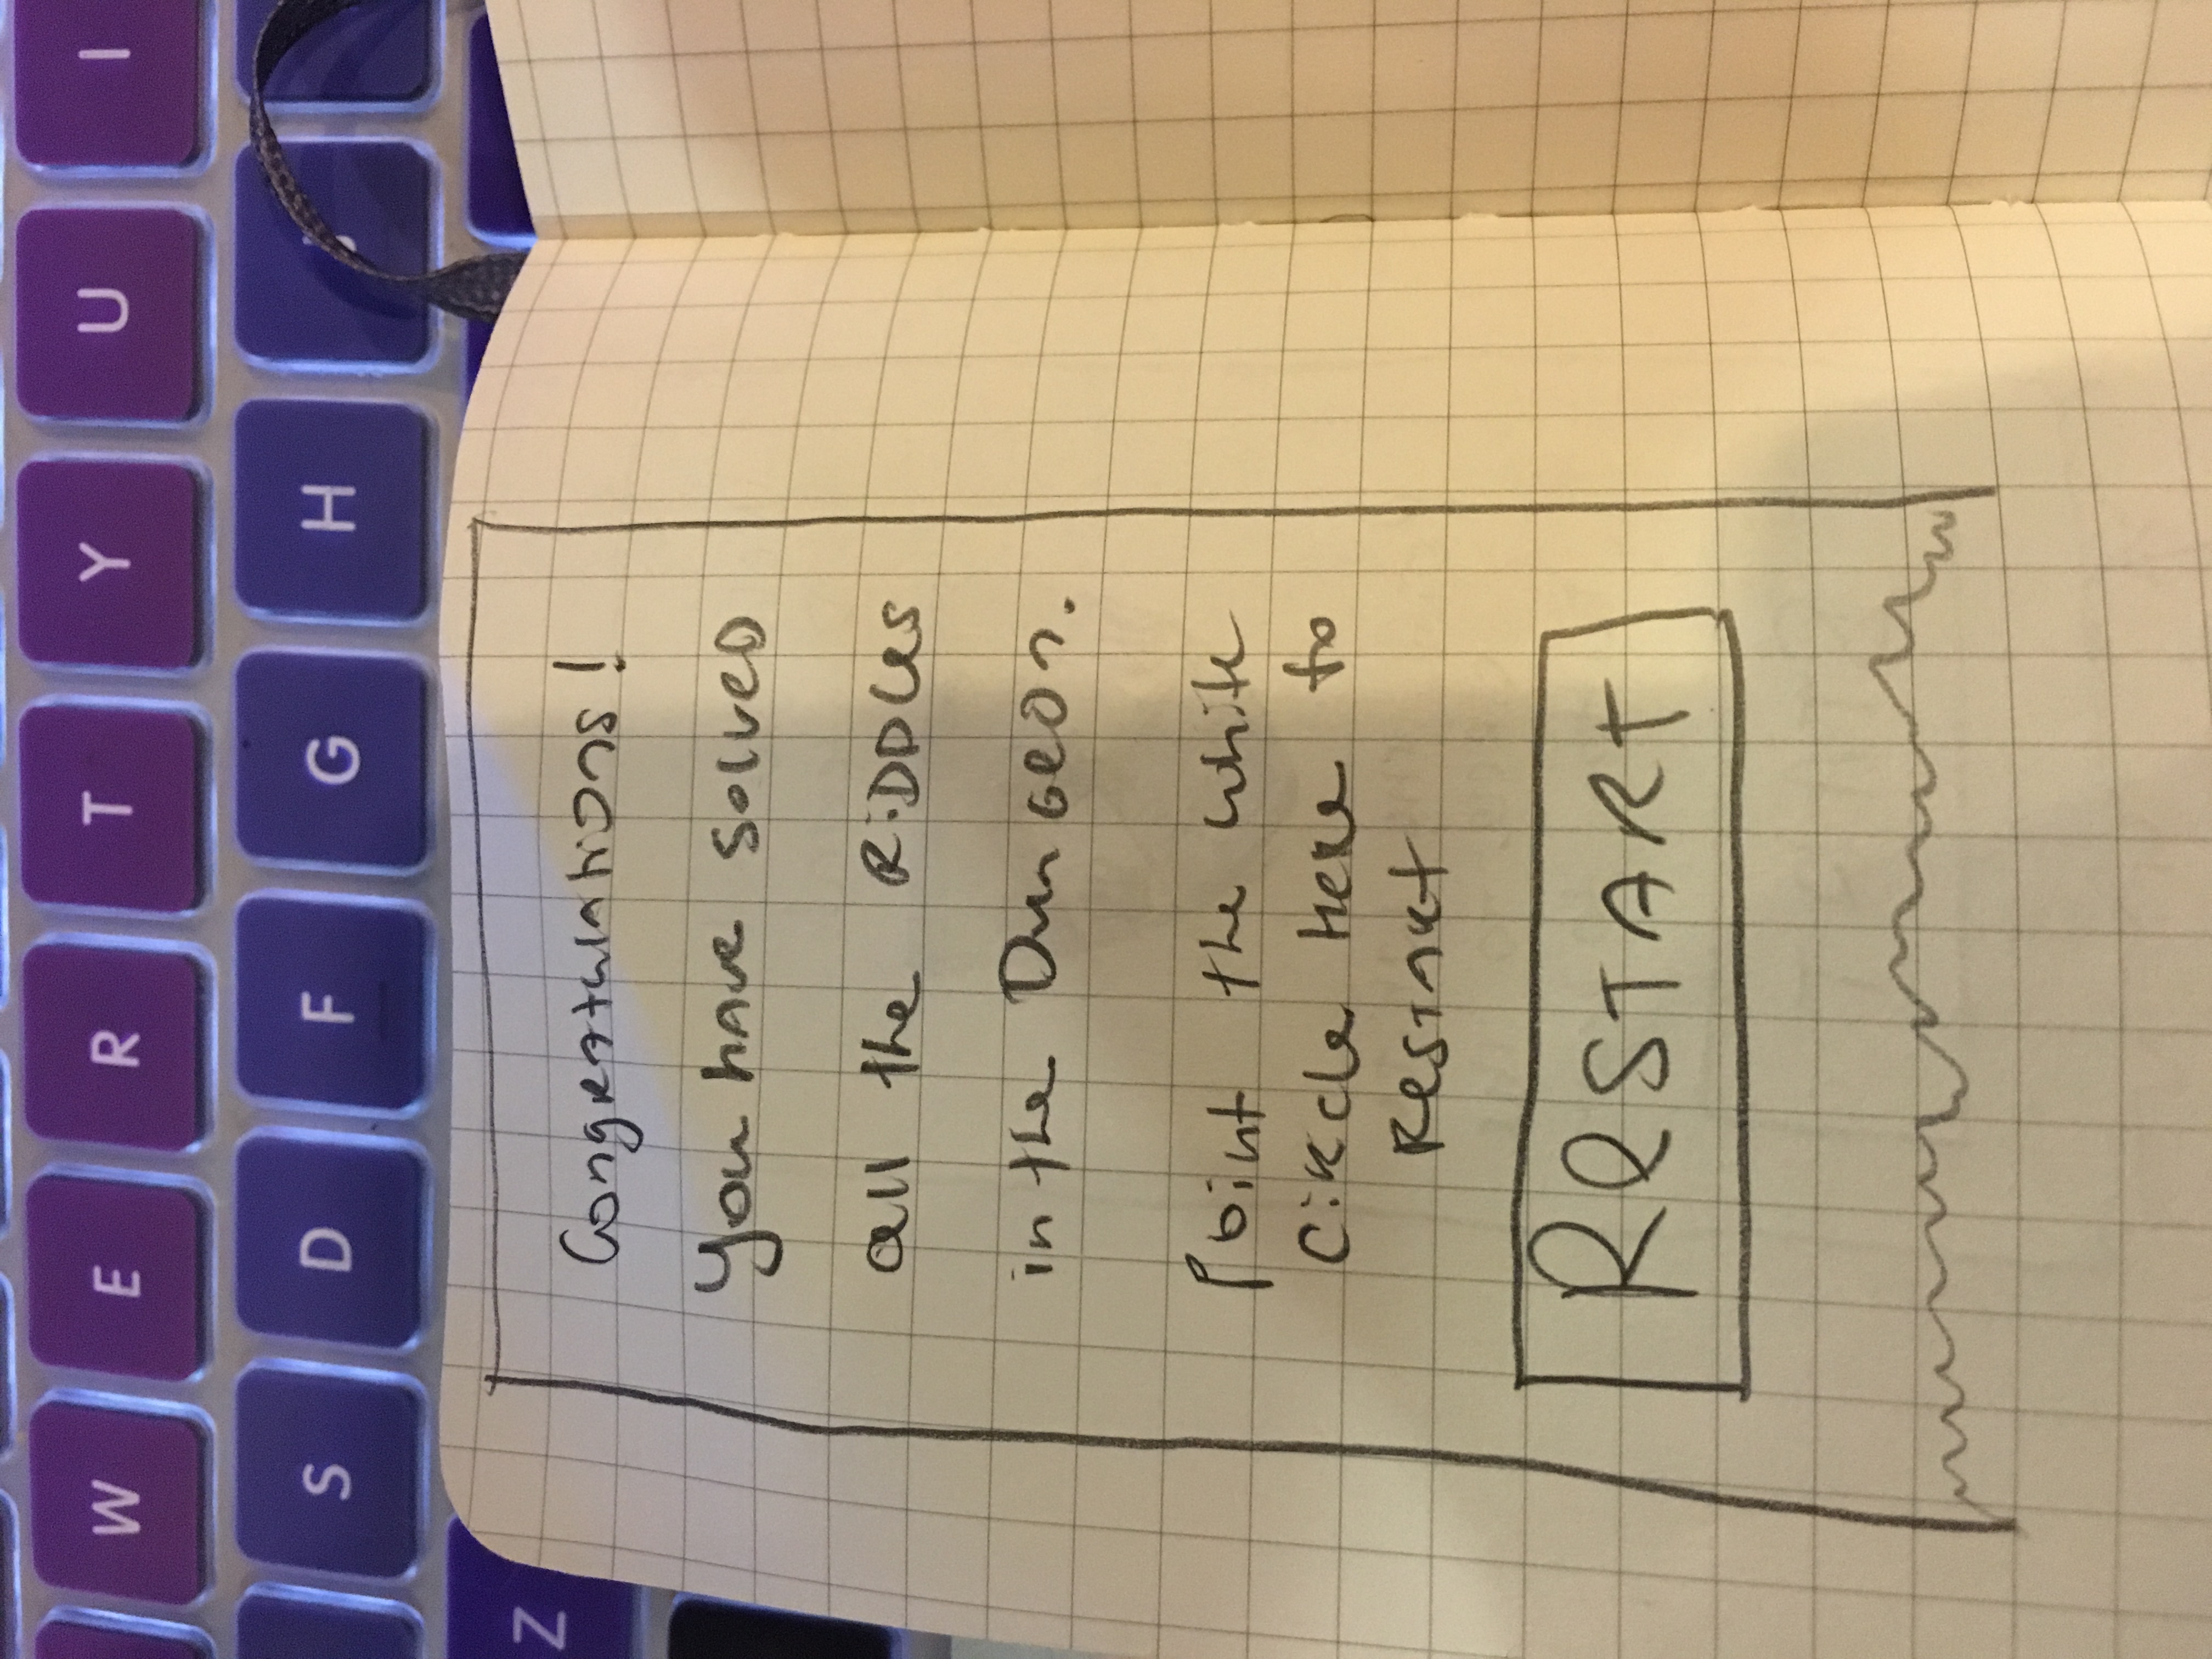 W E R T Y U I
S D F G H J
Z
Congratulations!
You have solved
all the RiDDles
in the DunGeon.
Point the white
Circle Here to
Restart
ReSTART